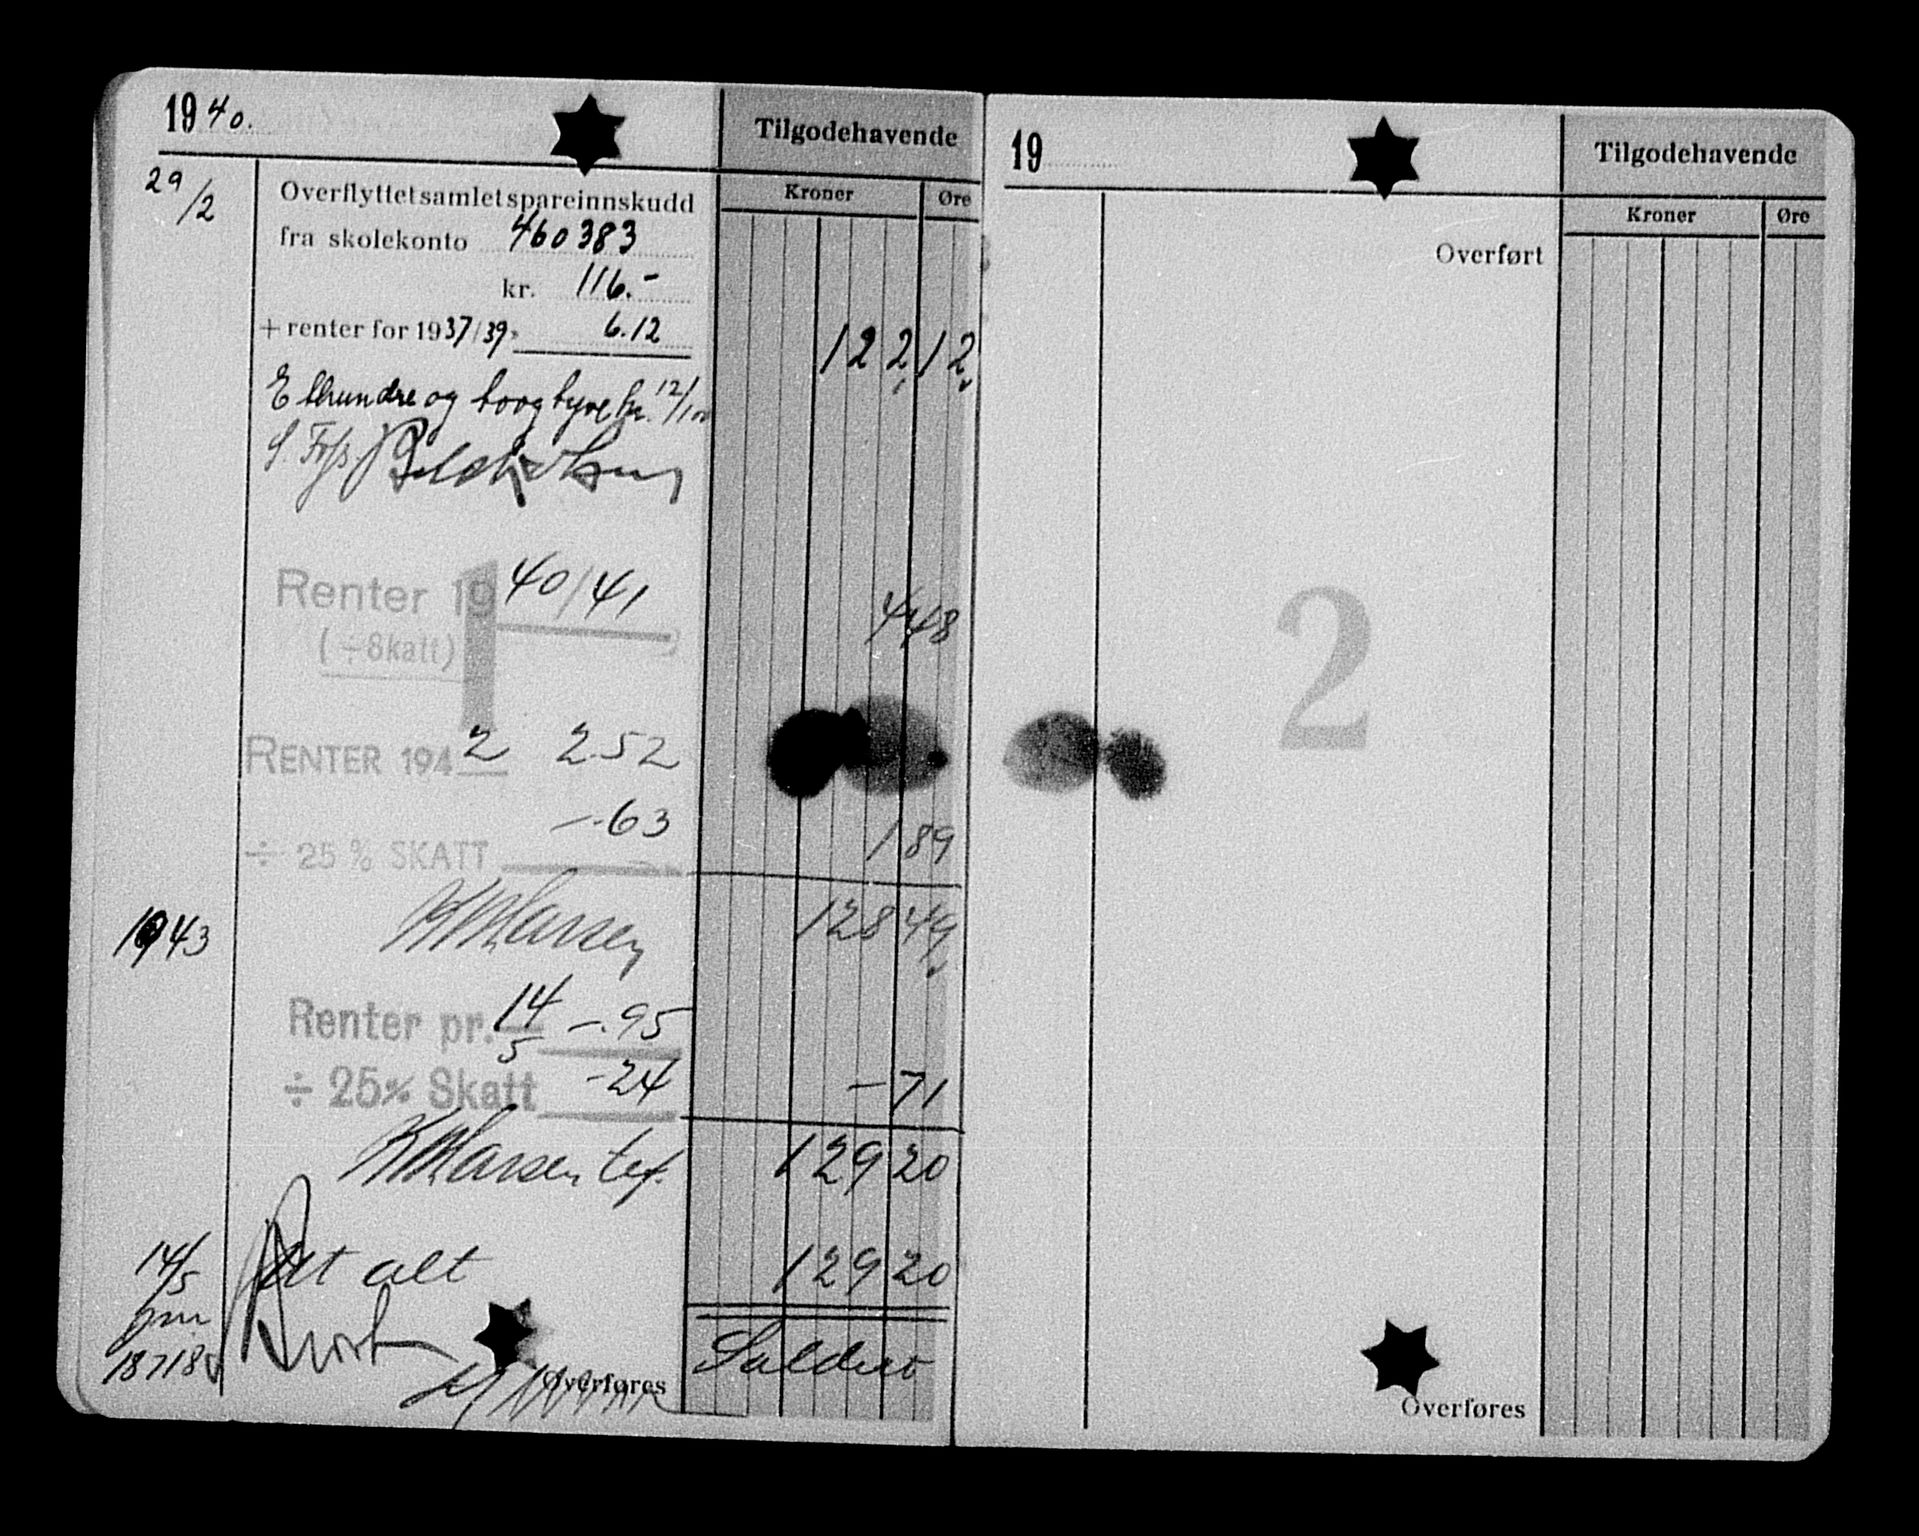 1940.
Tilgodehavende
Kroner Øre
29/2
Overflyttet samlet spareinnskudd
fra skolekonto 460383
kr. 116.-
+ renter for 1937/39 " 6.12 122 12
Etthundre og toogtyve kr. 12/100
Renter 1940/41 4 48
(÷Skatt)
1
RENTER 1942 2.52
-.63
÷ 25% SKATT 1 89
1943 128 49
Renter pr. 14/5 -.95
÷ 25% Skatt -24 - 71
129 20
14/5 alt 129 20
Saldert
Overføres
19
Tilgodehavende
Kroner Øre
Overført
2
Overføres